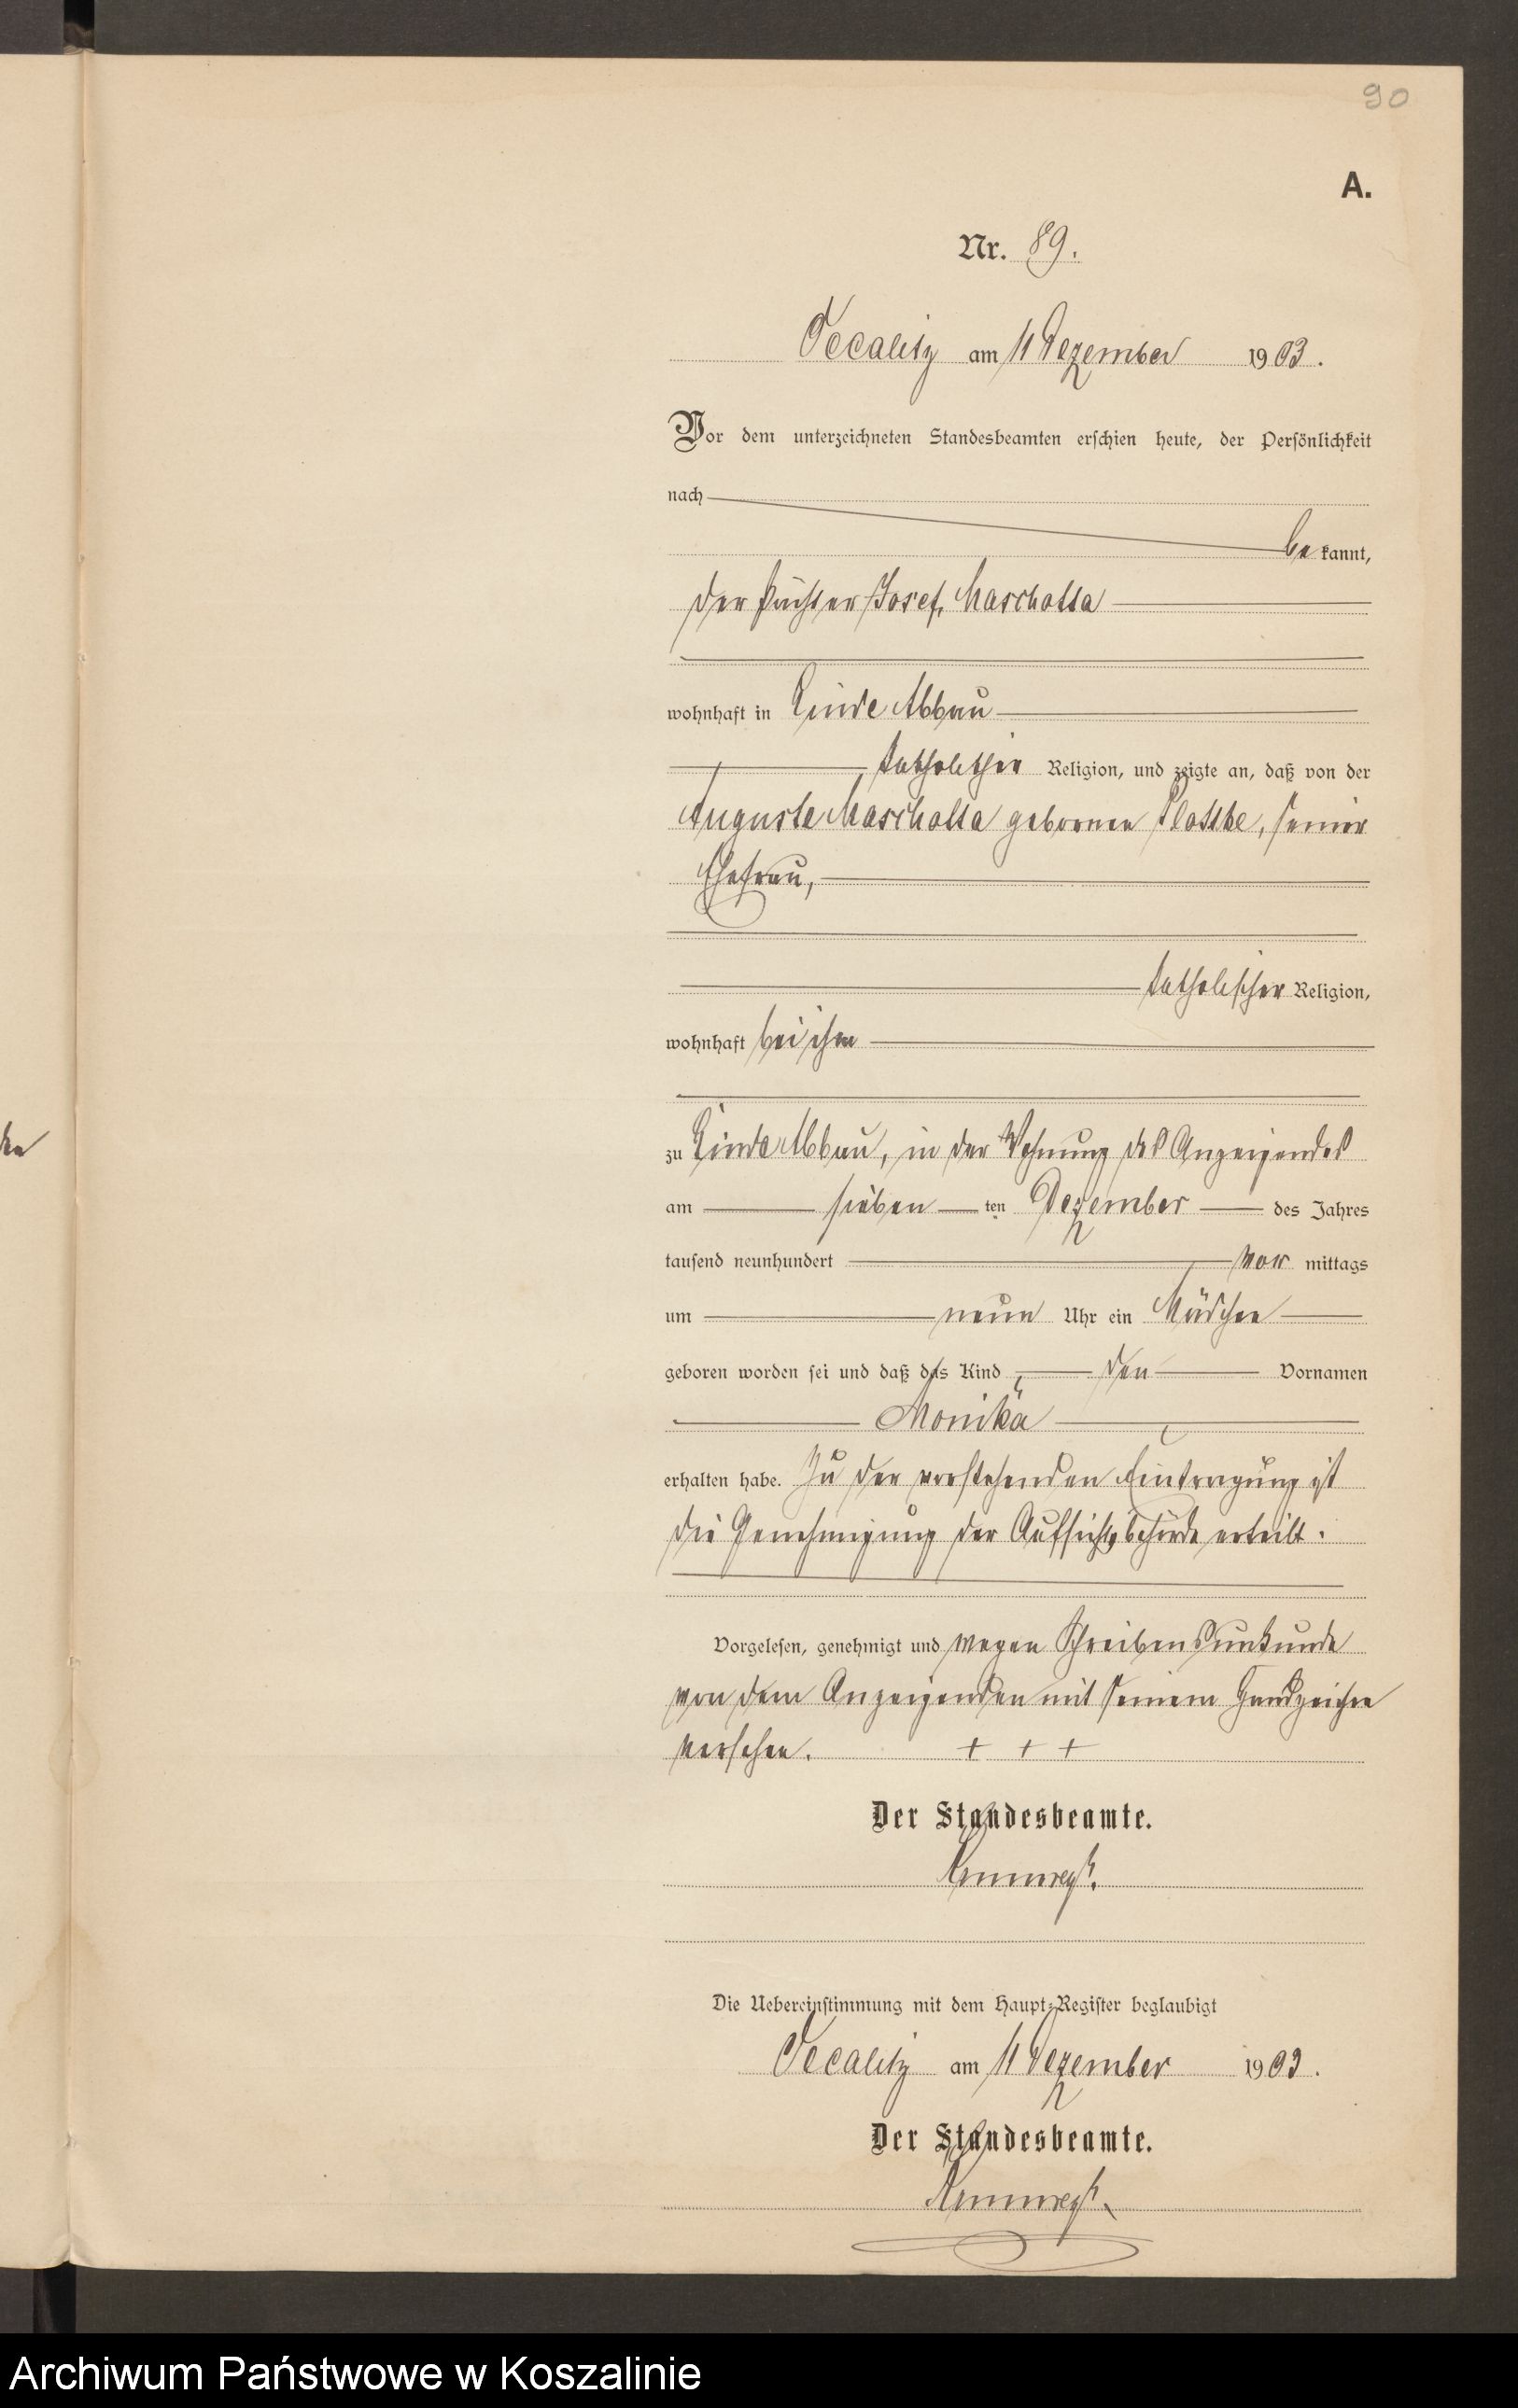 90
A.
Nr. 89.
am 11 Dezember 1903.
Vor dem unterzeichneten Standesbeamten erschien heute, der Persönlichkeit
nach
be kannt,
der Pächter Josef Marschotta
wohnhaft in Linde Abbau
katholischer Religion, und zeigte an, daß von der
Auguste Marschotta geborenen seiner
Ehefrau,
katholischer Religion,
wohnhaft bei ihm
zu Linde Abbau, in der Wohnung des Anzeigendes
am sieben ten Dezember des Jahres
tausend neunhundert vor mittags
um neun Uhr ein Mädchen
geboren worden sei und daß das Kind den Vornamen
Monika
erhalten habe. Zu der vorstehenden Eintragung ist
die Genehmigung der Aufsichtsbehörde erteilt.
Vorgelesen, genehmigt und wegen Schreibensunkunde
von dem Anzeigenden mit seinem Handzeichen
versehen. + + +
Der Standesbeamte.
Die Uebereinstimmung mit dem Haupt-Register beglaubigt
am 11 Dezember 1903.
Der Standesbeamte.
Archiwum Państwowe w Koszalinie